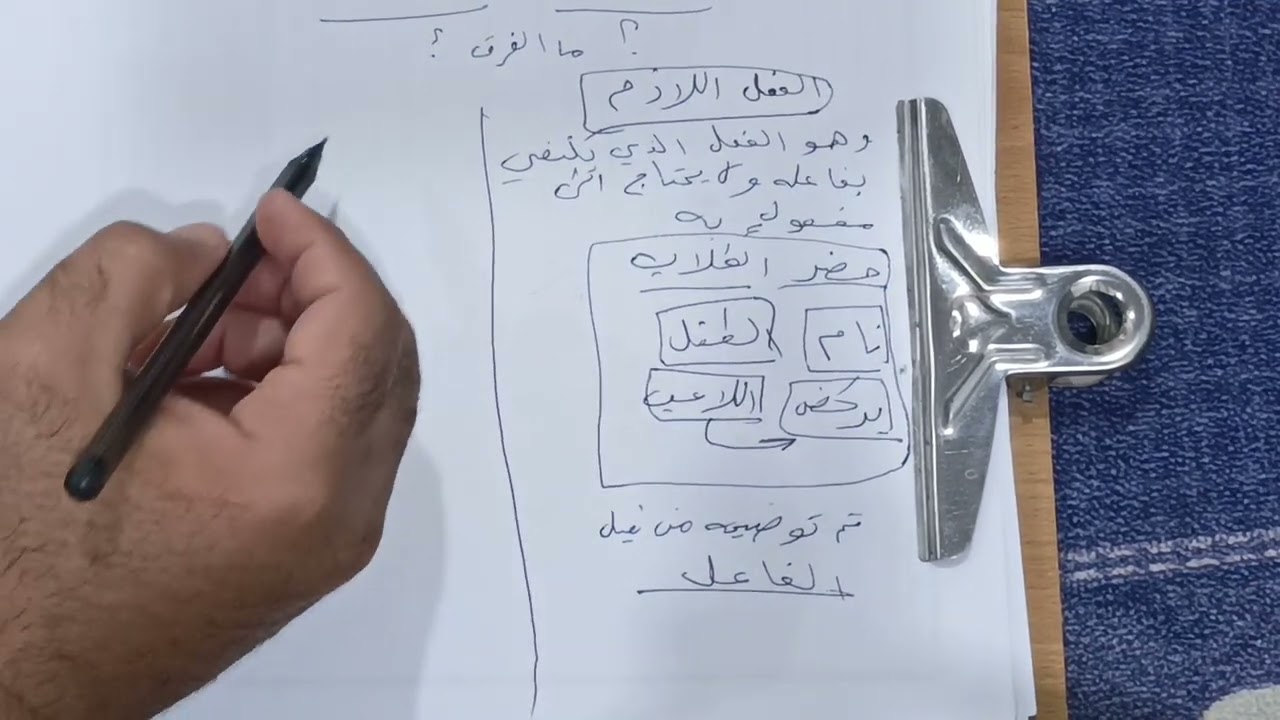 ؟ ما الفرق ؟
الفعل اللازم
وهو الفعل الذي يكتفي
بفاعله ولا يحتاج الى
مفعولٍ به
حضر الطلاب
نام الطفل
يركض اللاعب
تم توضيحه من قبل
الفاعل